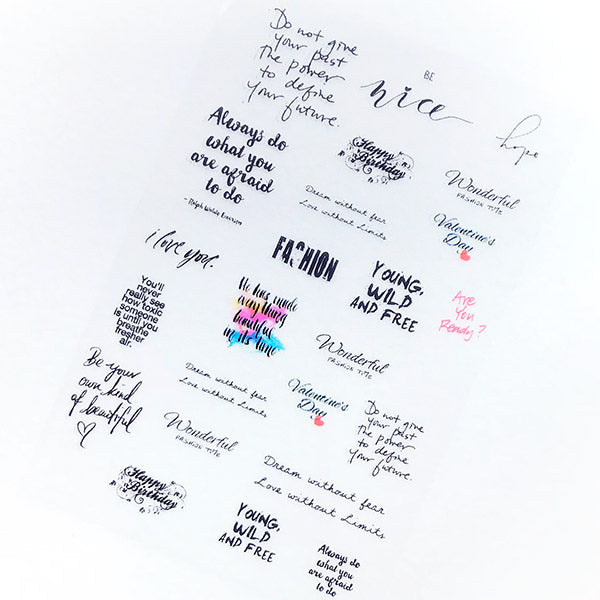 Do not give
your past
the power
to define
your future.
BE
nice
hope
Always do
what you
are afraid
to do
- Ralph Waldo Emerson
Happy
Birthday
Dream without fear
Love without Limits
Wonderful
FASHION TIME
Valentine's
Day
i love you.
FASHION
YOUNG,
WILD
AND FREE
Are
You
Ready?
You'll
never
really see
how toxic
someone
is until you
breathe
fresher
air.
He has made
everything
beautiful
in its time
Wonderful
FASHION TIME
Be your
own kind
of beautiful
Dream without fear
Love without Limits
Valentine's
Day
Do not give
your past
the power
to define
your future.
Wonderful
FASHION TIME
Dream without fear
Love without Limits
Happy
Birthday
YOUNG,
WILD
AND FREE
Always do
what you
are afraid
to do